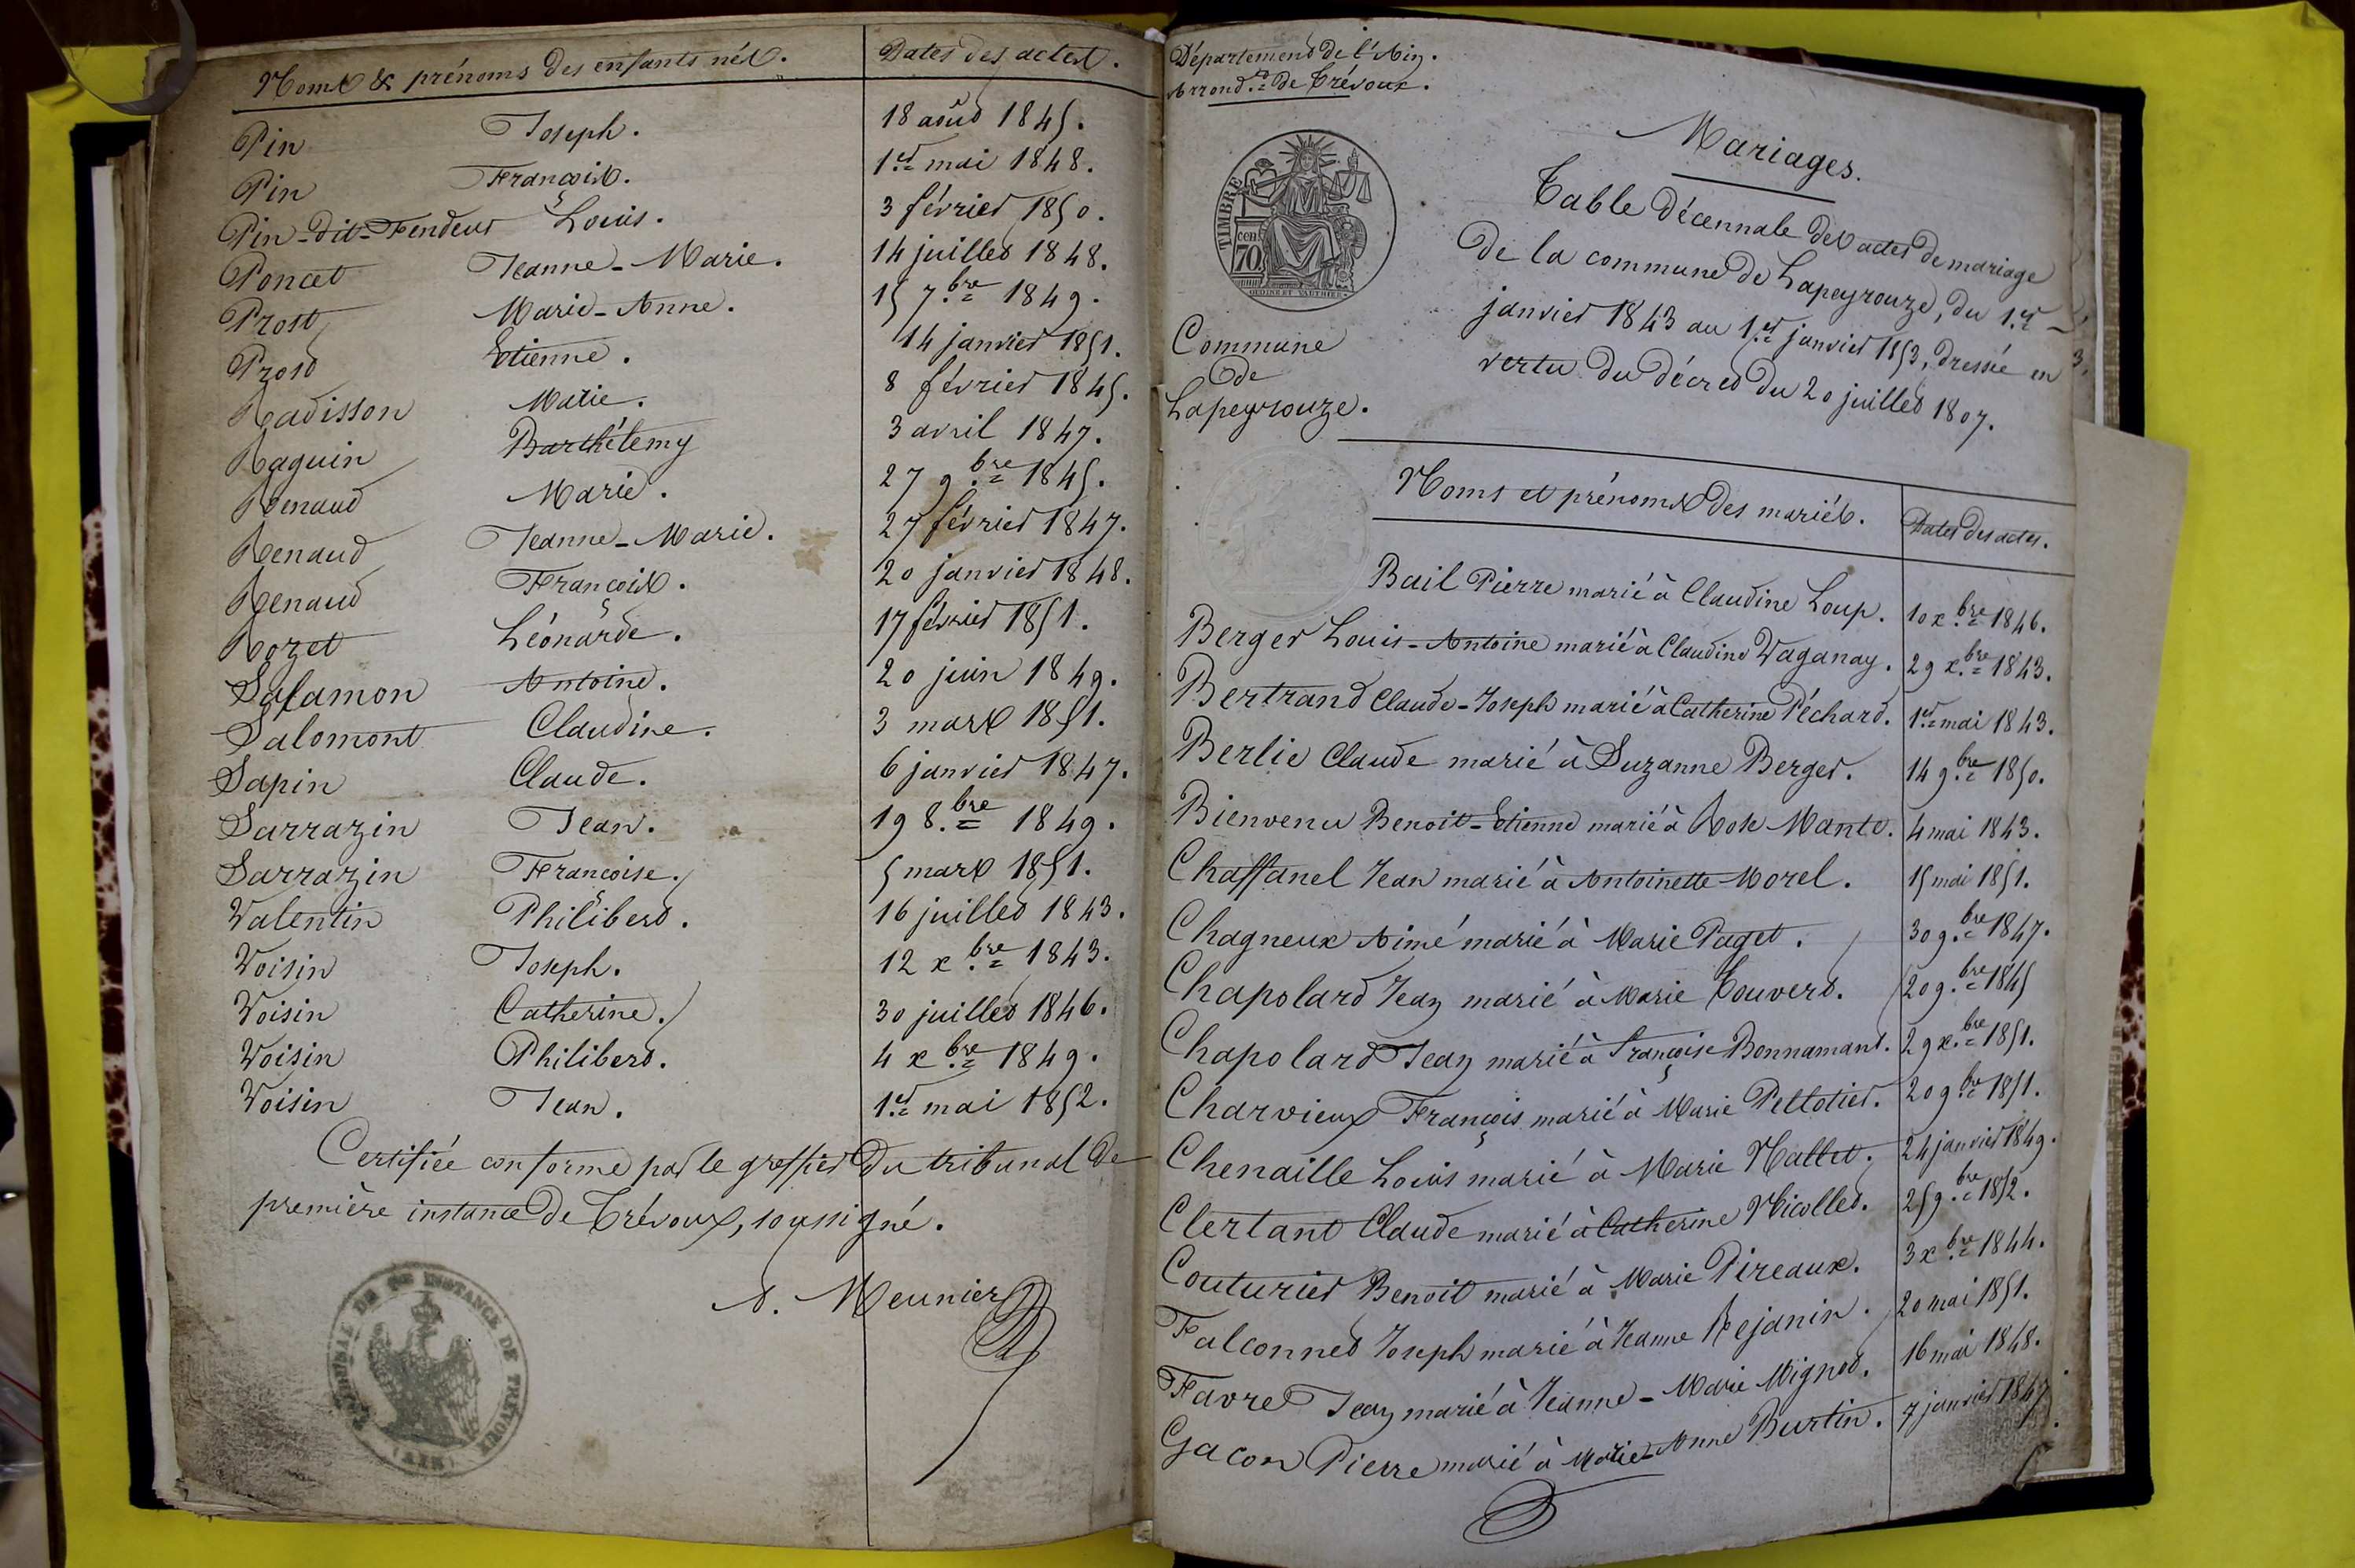 Noms & prénoms des enfants nés. Dates des actes.
Pin Joseph. 18 août 1845.
Pin François. 1.er mai 1848.
Pin-dit-Fendeur Louis. 3 février 1850.
Poncet Jeanne-Marie. 14 juillet 1848.
Prost Marie-Anne. 15 7.bre 1849.
Prost Etienne. 14 janvier 1851.
Radisson Marie. 8 février 1845.
Raguin Barthélemy 3 avril 1847.
Renaud Marie. 27 9.bre 1845.
Renaud Jeanne-Marie. 27 février 1847.
Renaud François. 20 janvier 1848.
Rozet Léonarde. 17 février 1851.
Salamon Antoine. 20 juin 1849.
Salomont Claudine. 3 mars 1851.
Sapin Claude. 6 janvier 1847.
Sarrazin Jean. 19 8.bre 1849.
Sarrazin Françoise. 5 mars 1851.
Valentin Philibert. 16 juillet 1843.
Voisin Joseph. 12 x.bre 1843.
Voisin Catherine. 30 juillet 1846.
Voisin Philibert. 4 x.bre 1849.
Voisin Jean. 1.er mai 1852.
Certifiée conforme par le greffier du tribunal de
première instance de Trévoux, soussigné.
A. Meunier
TRIBUNAL DE 1RE INSTANCE DE TREVOUX
(AIN)
Département de l'Ain.
Arrond.t de Trévoux.
TIMBRE
cen.
70.
Commune
de
Lapeyrouze.
Mariages.
Table décennale des actes de mariage
de la commune de Lapeyrouze, du 1.er
janvier 1843 au 1.er janvier 1853, dressée en
vertu du décret du 20 juillet 1807.
Noms et prénoms des mariés. Dates des actes.
Bail Pierre marié à Claudine Loup. 10 x.bre 1846.
Berger Louis-Antoine marié à Claudine Vaganay. 29 x.bre 1843.
Bertrand Claude-Joseph marié à Catherine Péchard. 1.er mai 1843.
Berlie Claude marié à Suzanne Berger. 14 9.bre 1850.
Bienvenu Benoit-Etienne marié à Rose Mante. 4 mai 1843.
Chaffanel Jean marié à Antoinette Morel. 15 mai 1851.
Chagneux Aimé marié à Marie Paget. 30 9.bre 1847.
Chapolard Jean marié à Marie Touvert. 20 9.bre 1845
Chapolard Jean marié à Françoise Bonnamant. 29 x.bre 1851.
Charvieux François marié à Marie Pellotier. 20 9.bre 1851.
Chenaille Louis marié à Marie Mallet. 24 janvier 1849.
Clertant Claude marié à Catherine Nicollet. 25 9.bre 1852.
Couturier Benoit marié à Marie Pireaux. 3 x.bre 1844.
Falconnet Joseph marié à Jeanne Rejanin. 20 mai 1851.
Favre Jean marié à Jeanne-Marie Mignot. 16 mai 1848.
Gacon Pierre marié à Marie-Anne Burtin. 7 janvier 1847.